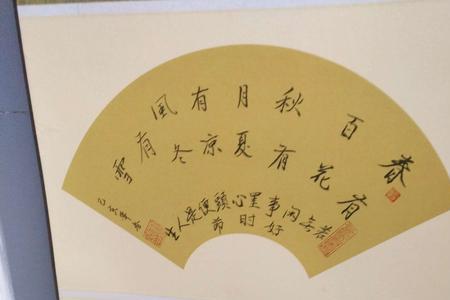 春有
百花
秋有
月夏
有凉
風冬
有雪
若无闲事罣心頭便是人生
好时節
己亥年